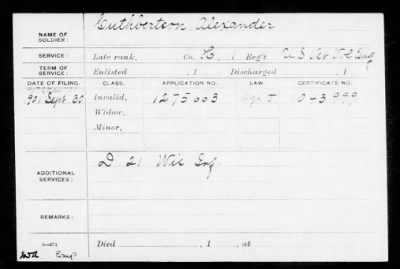 NAME OF SOLDIER: Cuthbertson, Alexander
SERVICE: Late rank, Co. , 1 Reg't U S
TERM OF SERVICE: Enlisted , 1 Discharged , 1
DATE OF FILING. CLASS. APPLICATION NO. LAW CERTIFICATE NO.
1901 Sept. 30 Invalid, 1275003
Widow,
Minor,
ADDITIONAL SERVICES: D 21 Wis Inf
REMARKS:
Died , 1 , at